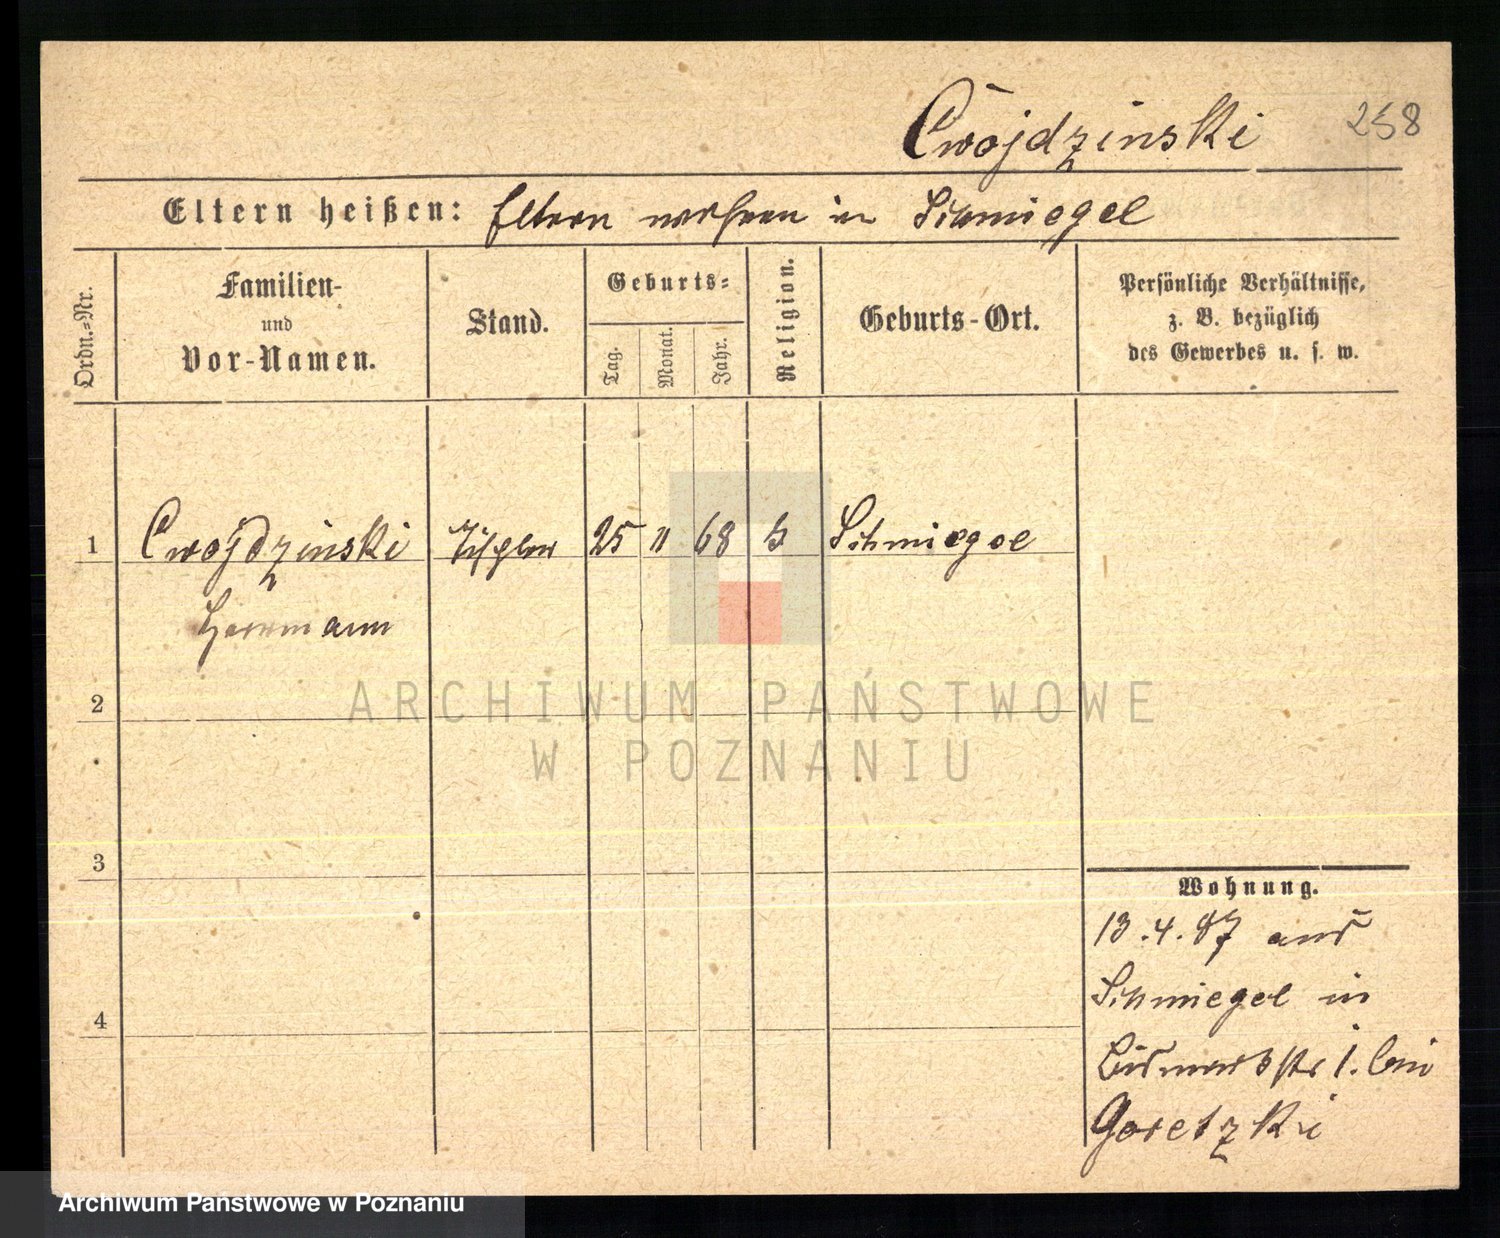 Cwojdzinski 258
Eltern heißen: Eltern wohnen in Schmiegel
Ordn.=Nr.
Familien-
und
Vor-Namen.
Stand.
Geburts=
Tag.
Monat.
Jahr.
Religion.
Geburts-Ort.
Persönliche Verhältnisse,
z. B. bezüglich
des Gewerbes u. s. w.
1 Cwojdzinski Tischler 25 11 68 k Schmiegel
Herrmann
2
3
4
Wohnung.
13.4.87 aus
Schmiegel in
Bismarckstr 1. bei
Goretzki
ARCHIWUM PAŃSTWOWE
W POZNANIU
Archiwum Państwowe w Poznaniu